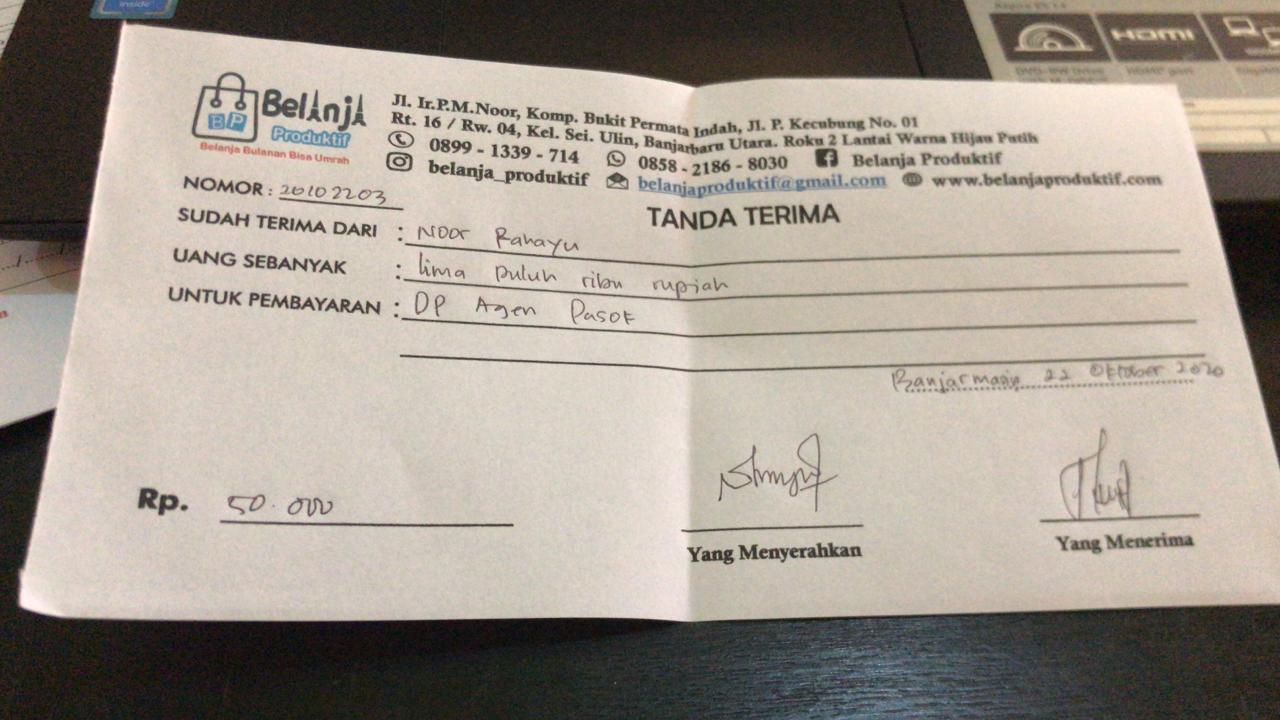 inside
HDMI
Belanja
BP
Produktif
Belanja Bulanan Bisa Umrah
Jl. Ir.P.M.Noor, Komp. Bukit Permata Indah, Jl. P. Kecubung No. 01
Rt. 16 / Rw. 04, Kel. Sei. Ulin, Banjarbaru Utara. Roku 2 Lantai Warna Hijau Putih
0899 - 1339 - 714 0858 - 2186 - 8030 Belanja Produktif
belanja_produktif belanjaproduktif@gmail.com www.belanjaproduktif.com
NOMOR : 20102203
TANDA TERIMA
SUDAH TERIMA DARI : Noor Rahayu
UANG SEBANYAK : lima puluh ribu rupiah
UNTUK PEMBAYARAN : DP Agen Pasok
Banjarmasin 22 Oktober 2020
Rp. 50.000
Yang Menyerahkan
Yang Menerima